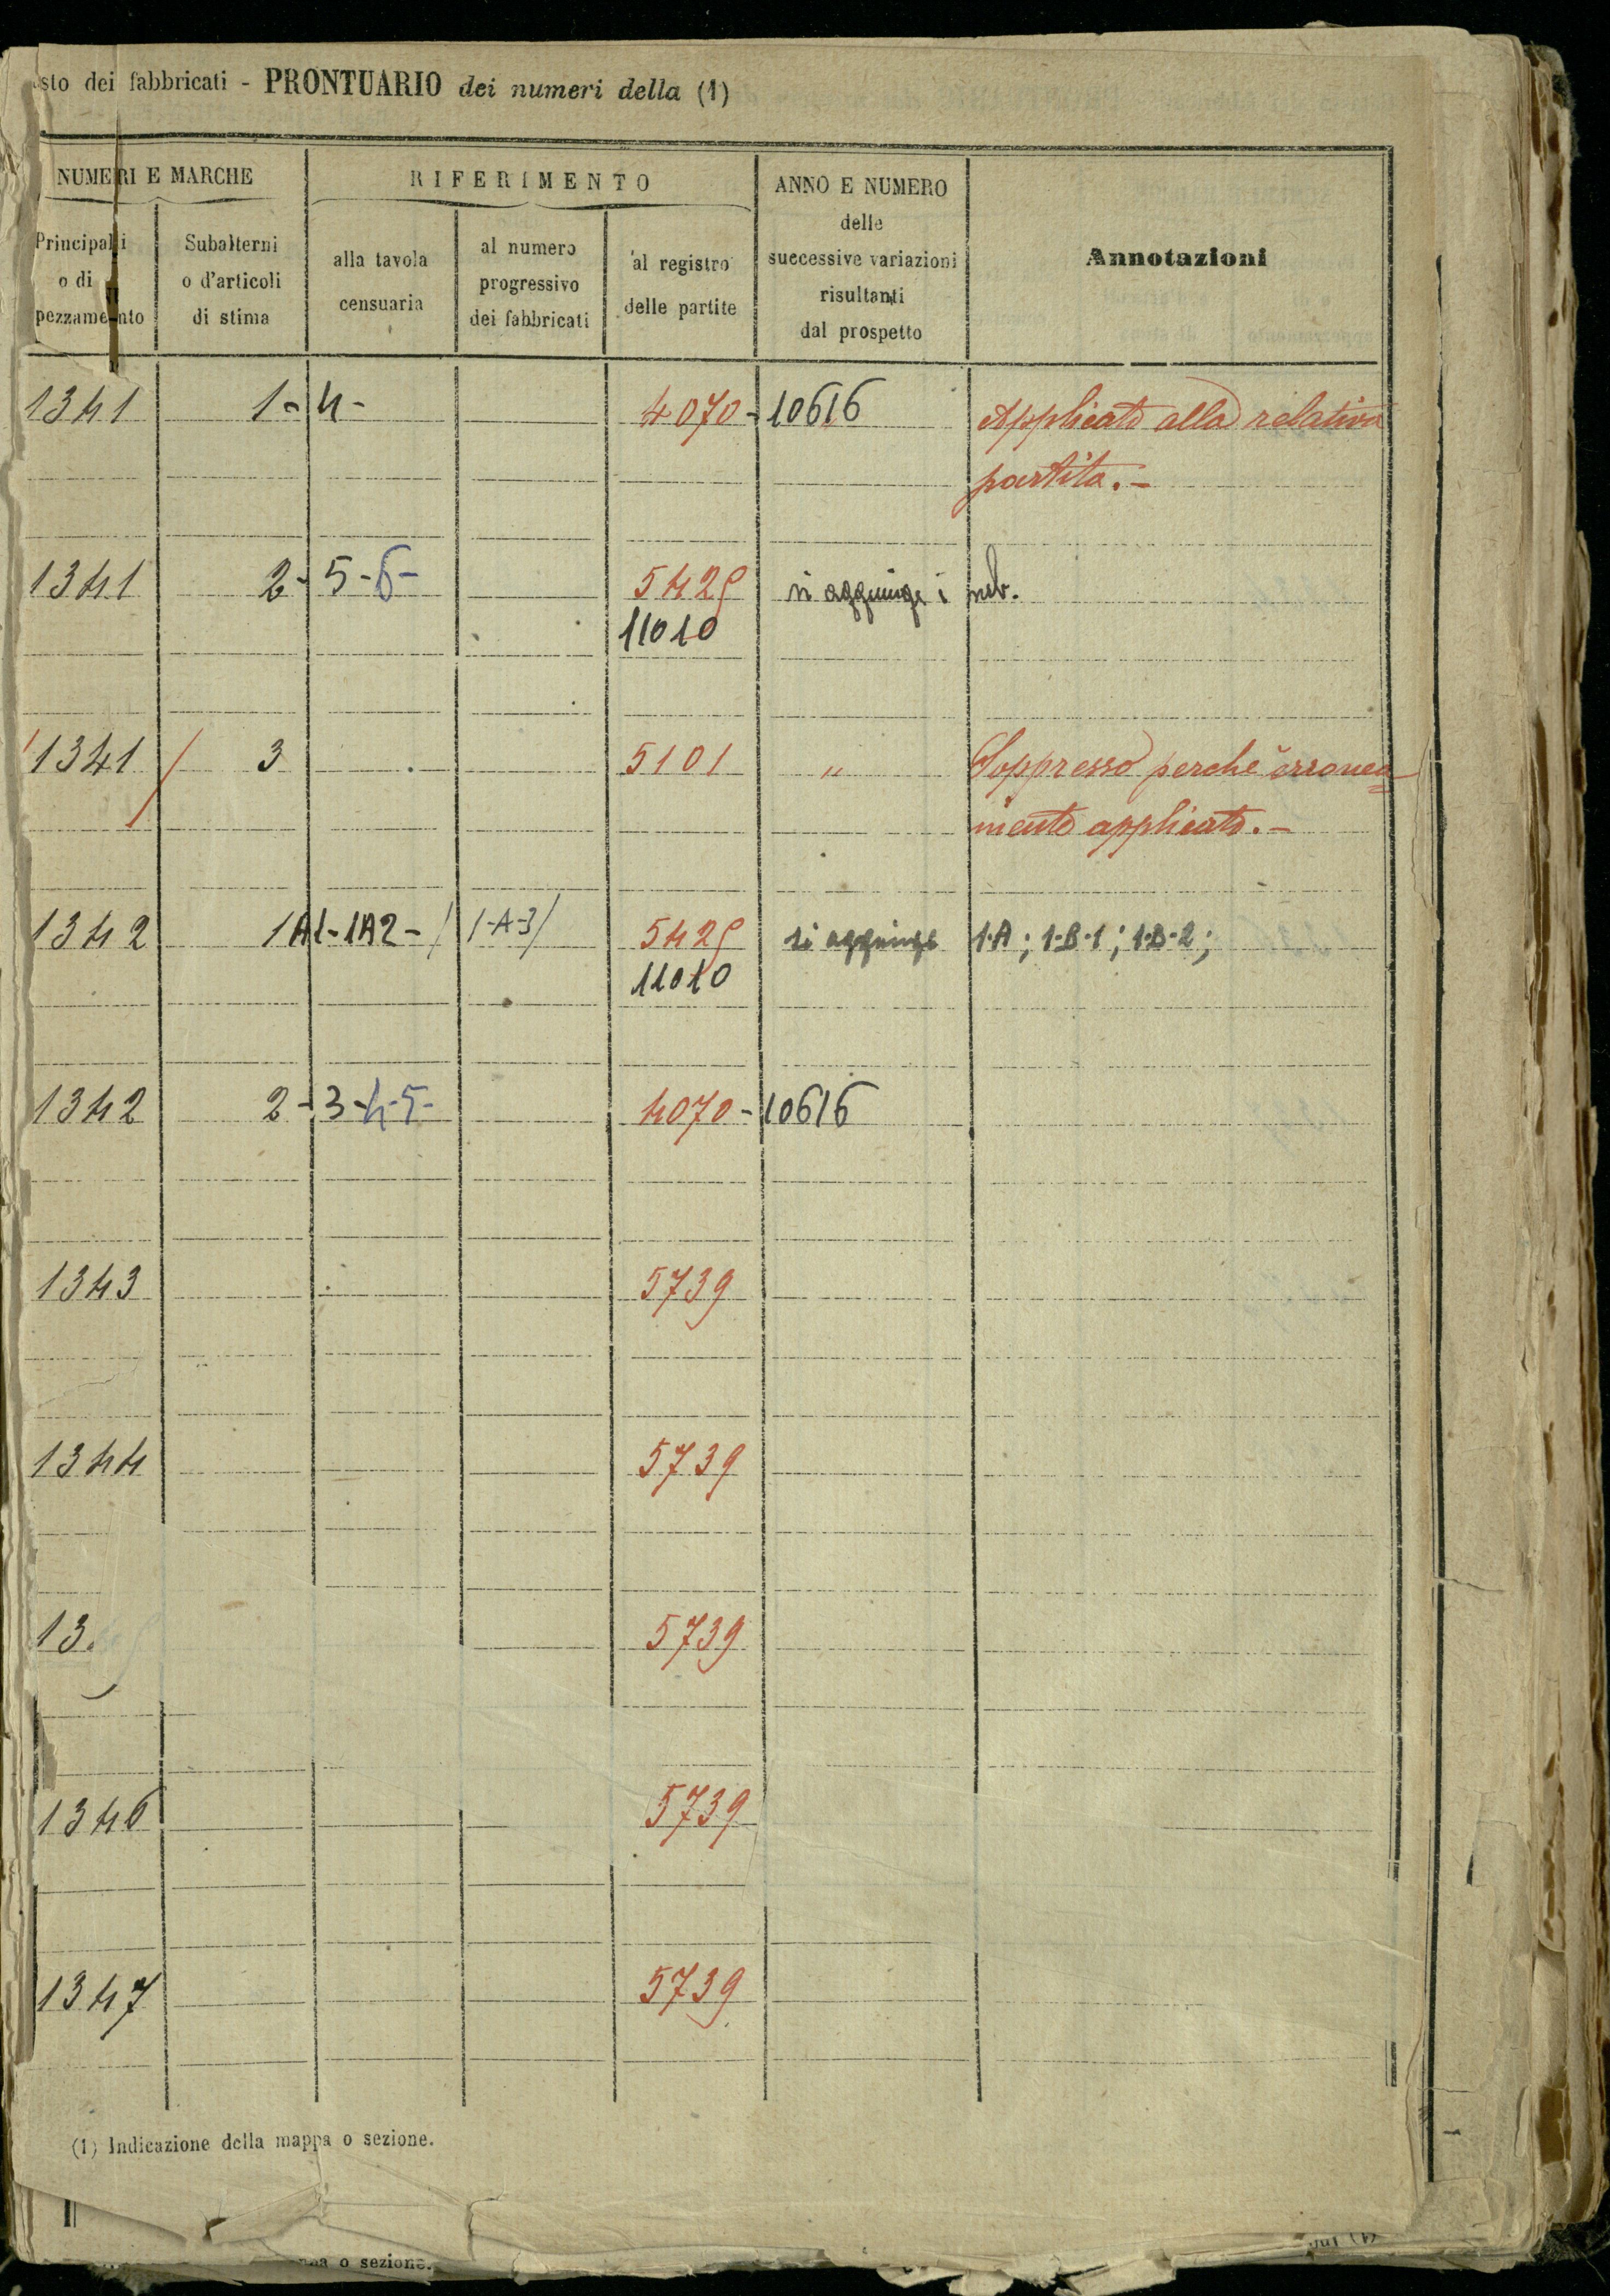 sto dei fabbricati - PRONTUARIO dei numeri della (1)
NUMERI E MARCHE
RIFERIMENTO
ANNO E NUMERO
delle
successive variazioni
risultanti
dal prospetto
Annotazioni
Principali
o di
pezzamento
Subalterni
o d'articoli
di stima
alla tavola
censuaria
al numero
progressivo
dei fabbricati
al registro
delle partite
1341 1-4- 4070-10616 Applicato alla relativa
partita.-
1341 2-5-6- 5429 si aggiunge i sub.
11010
1341 3 5101 " Soppresso perchè erronea
mente applicato.-
1342 1A1-1A2-/1-A-3/ 5429 si aggiunge 1-A; 1-B-1; 1-B-2;
11010
1342 2-3-4-5- 4070-10616
1343 5739
1344 5739
13 5739
1346 5739
1347 5739
(1) Indicazione della mappa o sezione.
o sezione.